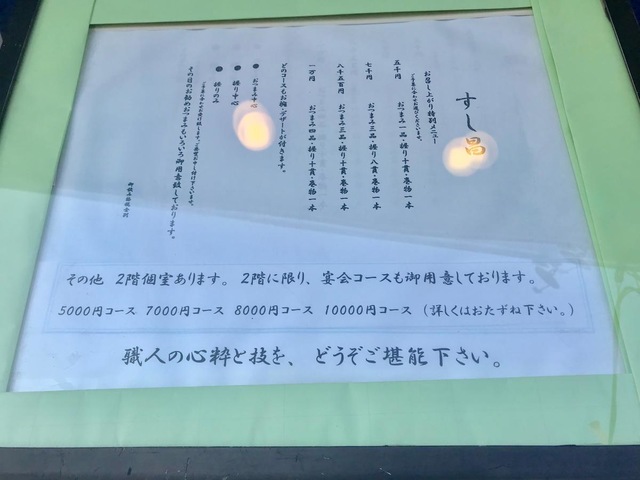 すし昌
お召し上がり特別メニュー
五千円 おつまみ一品・握り十貫・巻物一本
七千円 おつまみ三品・握り八貫・巻物一本
八千五百円 おつまみ三品・握り十貫・巻物一本
一万円 おつまみ四品・握り十貫・巻物一本
どのコースもお椀・デザートが付きます。
● おつまみ中心
● 握り中心
● 握りのみ
その日のお勧めおつまみもいろいろ御用意致しております。
その他 2階個室あります。 2階に限り、宴会コースも御用意しております。
5000円コース 7000円コース 8000円コース 10000円コース (詳しくはおたずね下さい。)
職人の心粋と技を、 どうぞご堪能下さい。